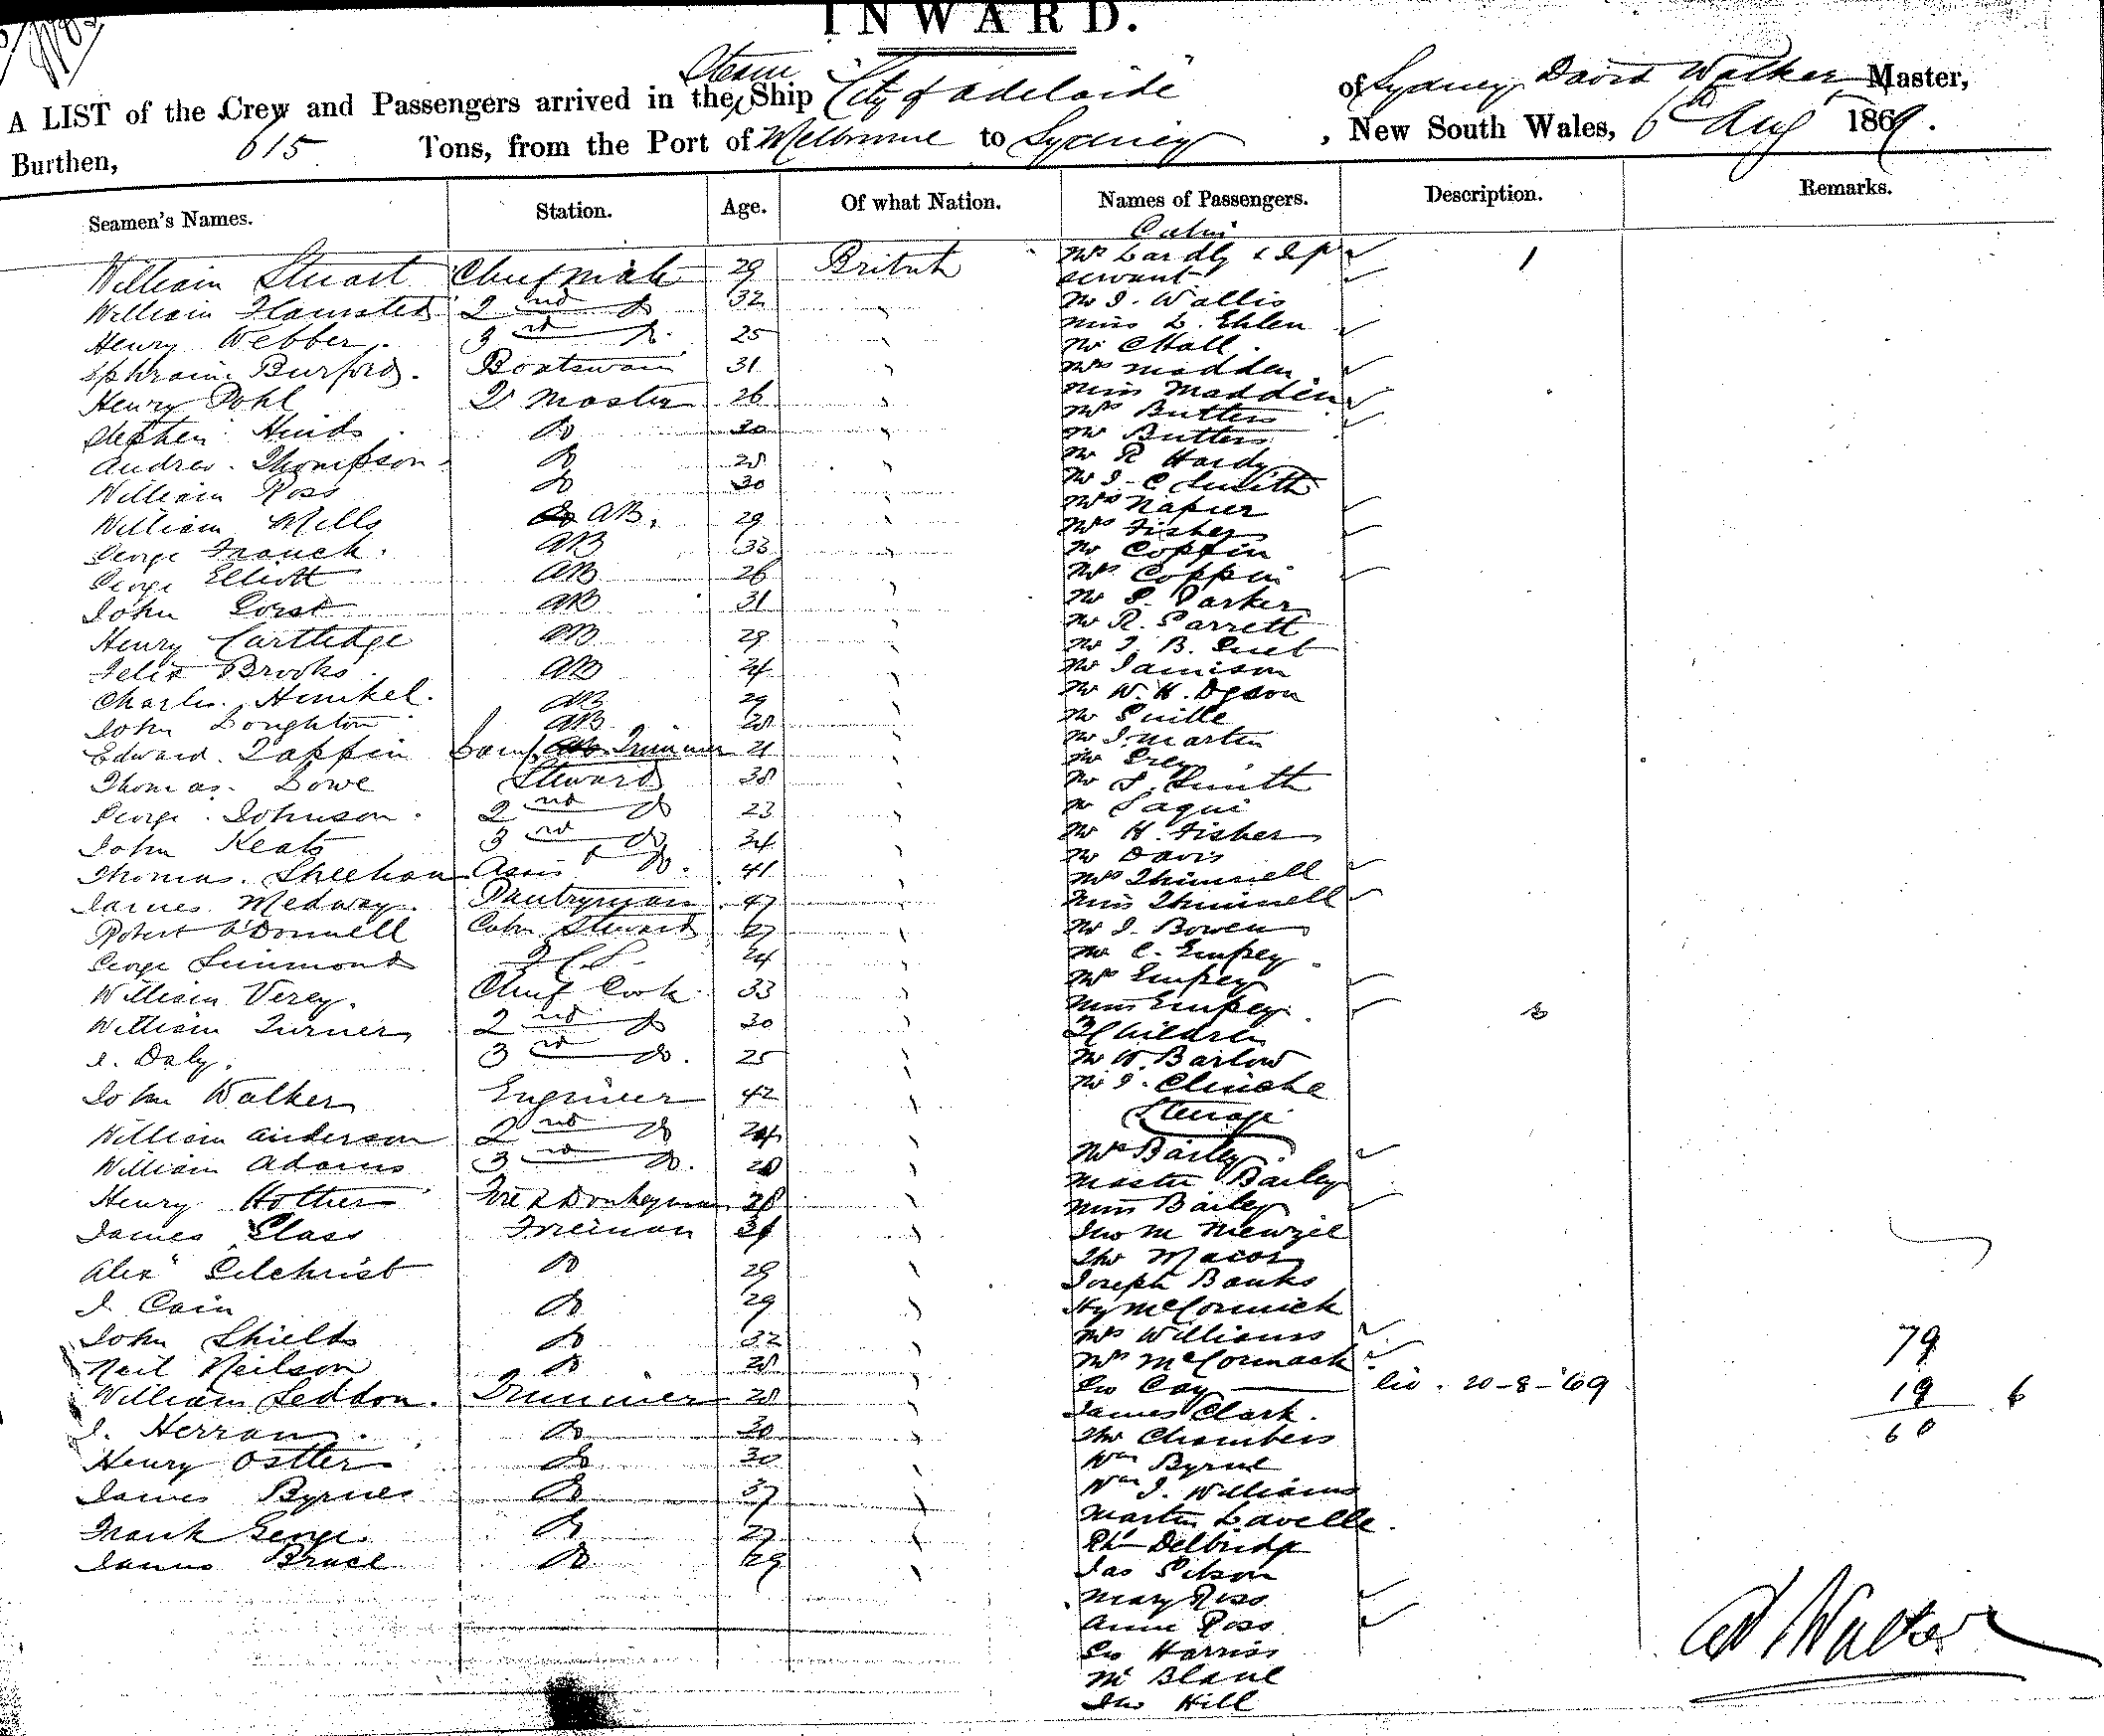 INWARD.
A LIST of the Crew and Passengers arrived in the Steam Ship "City of Adelaide" of Sydney, David Walker, Master,
Burthen, 615 Tons, from the Port of Melbourne to Sydney, New South Wales, 6th Aug 1869.
Seamen's Names. Station. Age. Of what Nation. Names of Passengers. Description. Remarks.
Cabin
William Stuart Chief Mate 29 British
William 2nd do 32
Henry Webber. 3rd do. 25
Ephraim Burford. Boatswain 31
Henry Pohl Qr Master 26
Stephen Hinds do 30
Andrew Thompson do 28
William Ross do 30
William Mills AB. 29
George Franck. AB 33
George Elliott AB 26
John Gorst AB 31
Henry Cartledge AB 29
Felix Brooks AB 24
Charles Henkel. AB 29
John Boughton AB 28
Edward Tappin Lamp Trimmer 21
Thomas Lowe Steward 38
George Johnson. 2nd do 23
John Keats 3rd do 34
Thomas Sheehan Assist do. 41
James Medway. Pantryman 47
Robert O'Donnell Cabin Steward 27
George Simmonds 24
William Verey. Chief Cook 33
William Turner 2nd do 30
J. Daly. 3rd do. 25
John Walker Engineer 42
William Anderson 2nd do 24
William Adams 3rd do. 28
Henry Donkeyman 28
James Glass Fireman
Alexr Gilchrist do 29
J. Cain do 29
John Shields do 32
Neil Neilson do 28
William Seddon. Trimmer 28
J. Herran do 30
Henry Ostler do 30
James Byrnes do 37
Frank George do 27
James Bruce do 29
servant
Mr J. Wallis
Miss L. Ehlen
Mr C Hall.
Mrs Madden
Miss Madden
Mrs Butters
Mr Butters
Mr R Hardy
Mr J. C Smith
Mrs Napier
Mrs Fisher
Mr Coppin
Mrs Coppin
Mr S. Parker
Mr R. Garrett
Mr J. B.
Mr Jamison
Mr W. H.
Mr
Mr J. Martin
Mr Grey
Mr S. Smith
Mr
Mr H. Fisher
Mr Davis
Mrs
Miss
Mr J. Bowen
Mr C. Empey
Mrs Empey
Miss Empey
Children
Mr W. Barlow
Mr J.
Steerage
Mrs Bailey
Master Bailey
Miss Bailey
Jno
Thos
Joseph Banks
Hy McCormick
Mrs Williams
Mrs McCormack
Geo Cay 20-8-'69
James Clark.
Thos Chambers
Wm Byrne
Wm J. Williams
Martin Lavelle.
Delbridge
Jas Gibson
Mary Ross
Annie Ross
Geo Harris
Mr Blane
Jno Hill
1
79
19 6
60
Walker